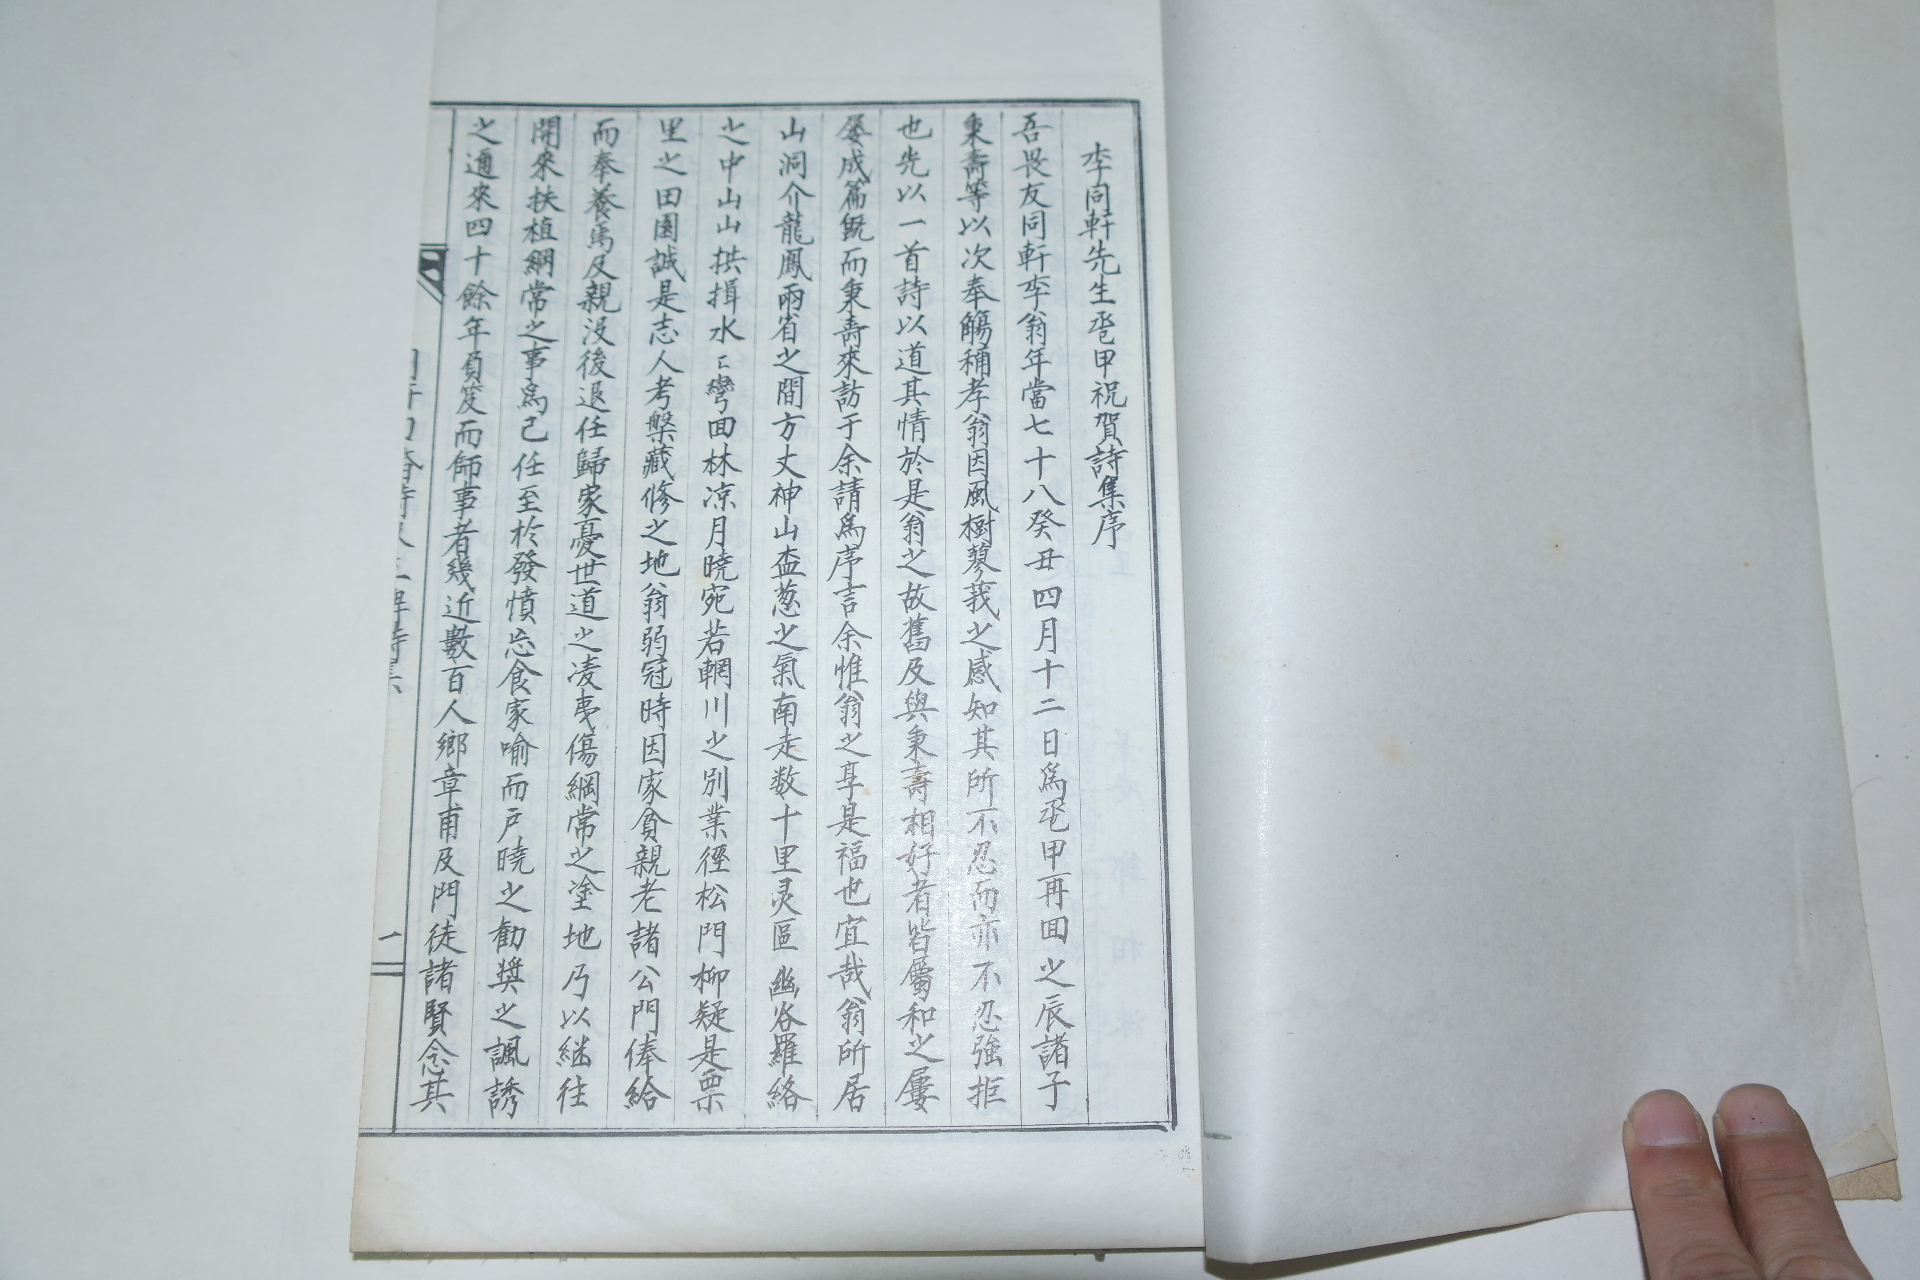 李同軒先生卺甲祝賀詩集序
吾畏友同軒李翁年當七十八癸丑四月十二日爲卺甲再回之辰諸子
秉壽等以次奉觴稱孝翁因風樹蓼莪之感知其所不忍而亦不忍強拒
也先以一首詩以道其情於是翁之故舊及與秉壽相好者皆屬和之屢
屡成篇旣而秉壽來訪于余請爲序言余惟翁之享是福也宜哉翁所居
山洞介龍鳳兩省之間方丈神山盃葱之氣南走数十里灵區幽谷羅絡
之中山山拱揖水〻彎回林凉月曉宛若輞川之別業徑松門柳疑是栗
里之田園誠是志人考槃藏修之地翁弱冠時因家貧親老諸公門俸給
而奉養焉及親沒後退任歸家憂世道之凌夷傷綱常之塗地乃以継往
開來扶植綱常之事爲己任至於發憤忘食家喻而戶曉之勧奨之諷誘
之邇來四十餘年負笈而師事者幾近數百人鄉章甫及門徒諸賢念其
二